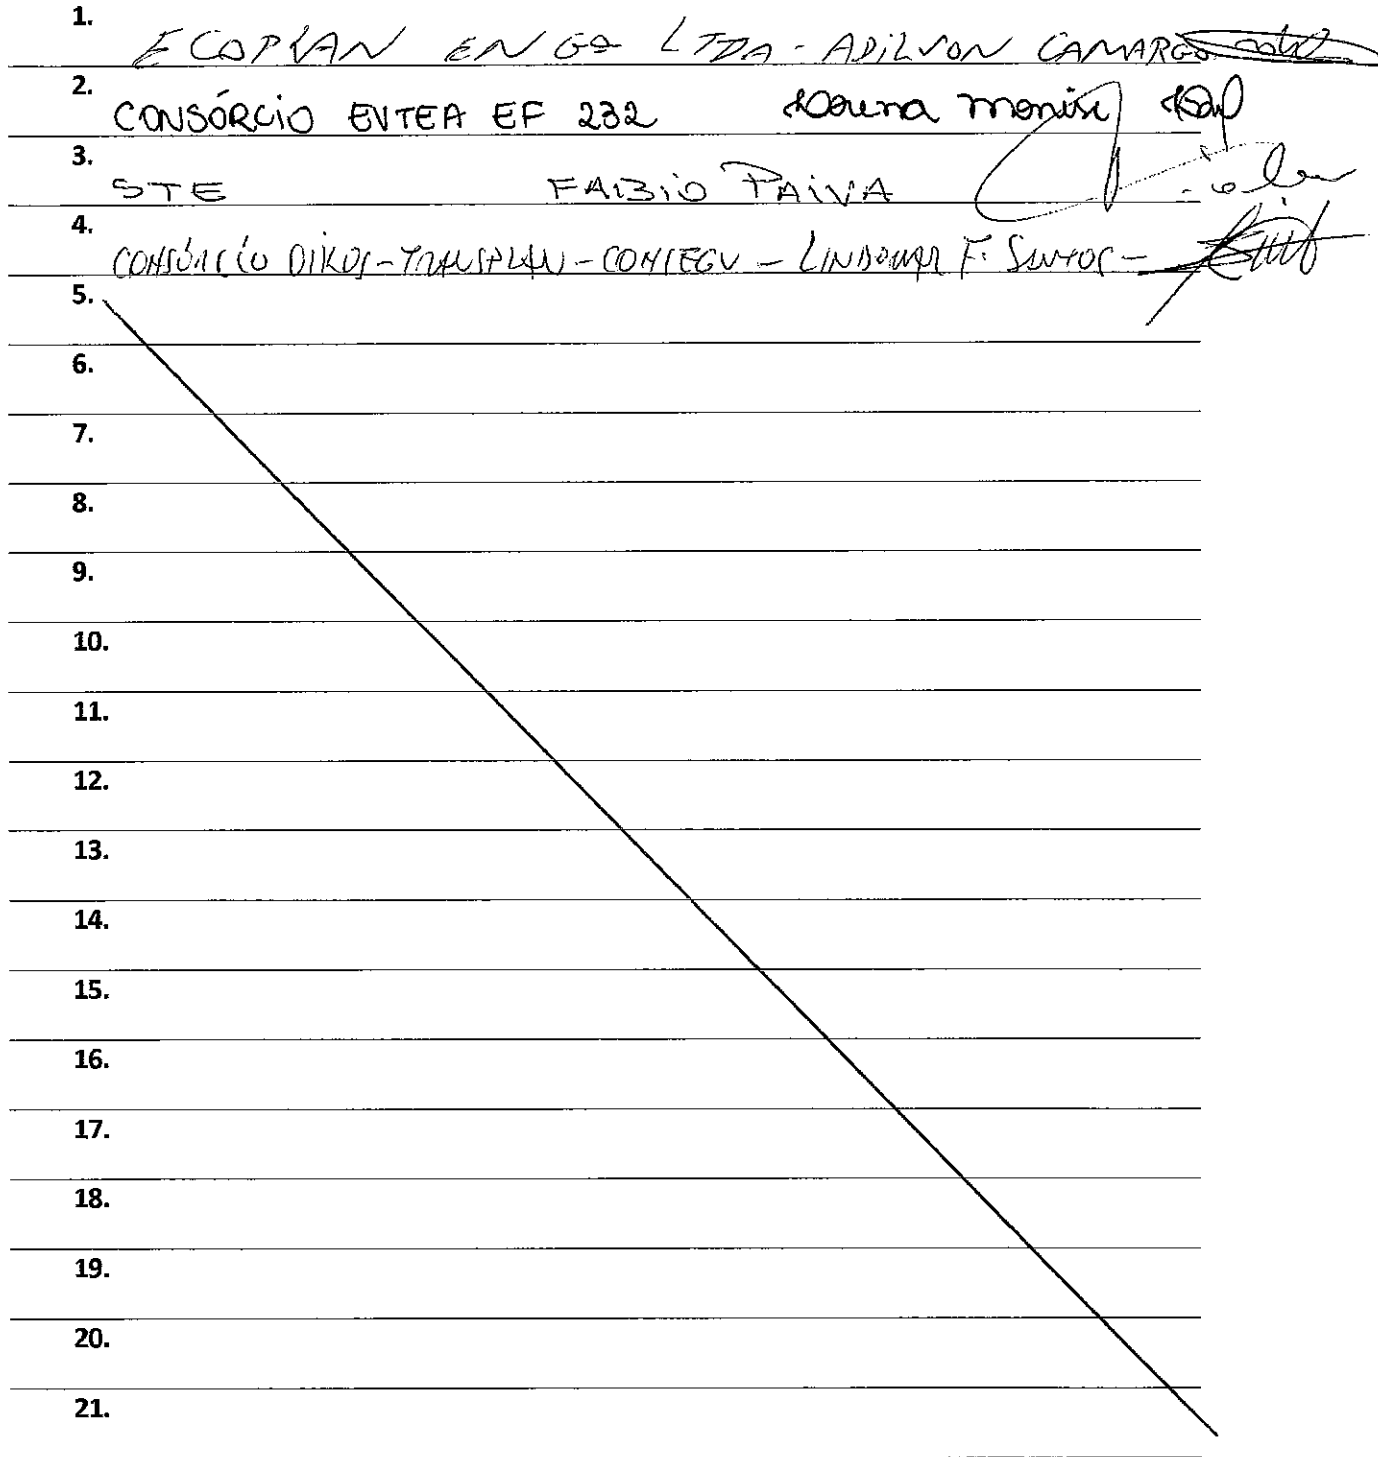 1.
ECOPLAN ENGª LTDA - ADILSON CAMARGO
2.
CONSÓRCIO EVTEA EF 232
3.
STE FABIO PAIVA
4.
CONSÓRCIO DIKOS-TRANSPLAN-CONSEGV - LINDOMAR F. SANTOS -
5.
6.
7.
8.
9.
10.
11.
12.
13.
14.
15.
16.
17.
18.
19.
20.
21.